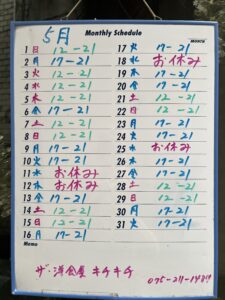 5月
Monthly Schedule
MONTH
1 日 12-21
2 月 17-21
3 火 12-21
4 水 12-21
5 木 12-21
6 金 17-21
7 土 12-21
8 日 12-21
9 月 17-21
10 火 17-21
11 水 お休み
12 木 お休み
13 金 17-21
14 土 12-21
15 日 12-21
16 月 17-21
17 火 17-21
18 水 お休み
19 木 17-21
20 金 17-21
21 土 12-21
22 日 12-21
23 月 17-21
24 火 17-21
25 水 お休み
26 木 17-21
27 金 17-21
28 土 12-21
29 日 12-21
30 月 17-21
31 火 17-21
Memo
ザ・洋食屋 キチキチ
075-211-1484